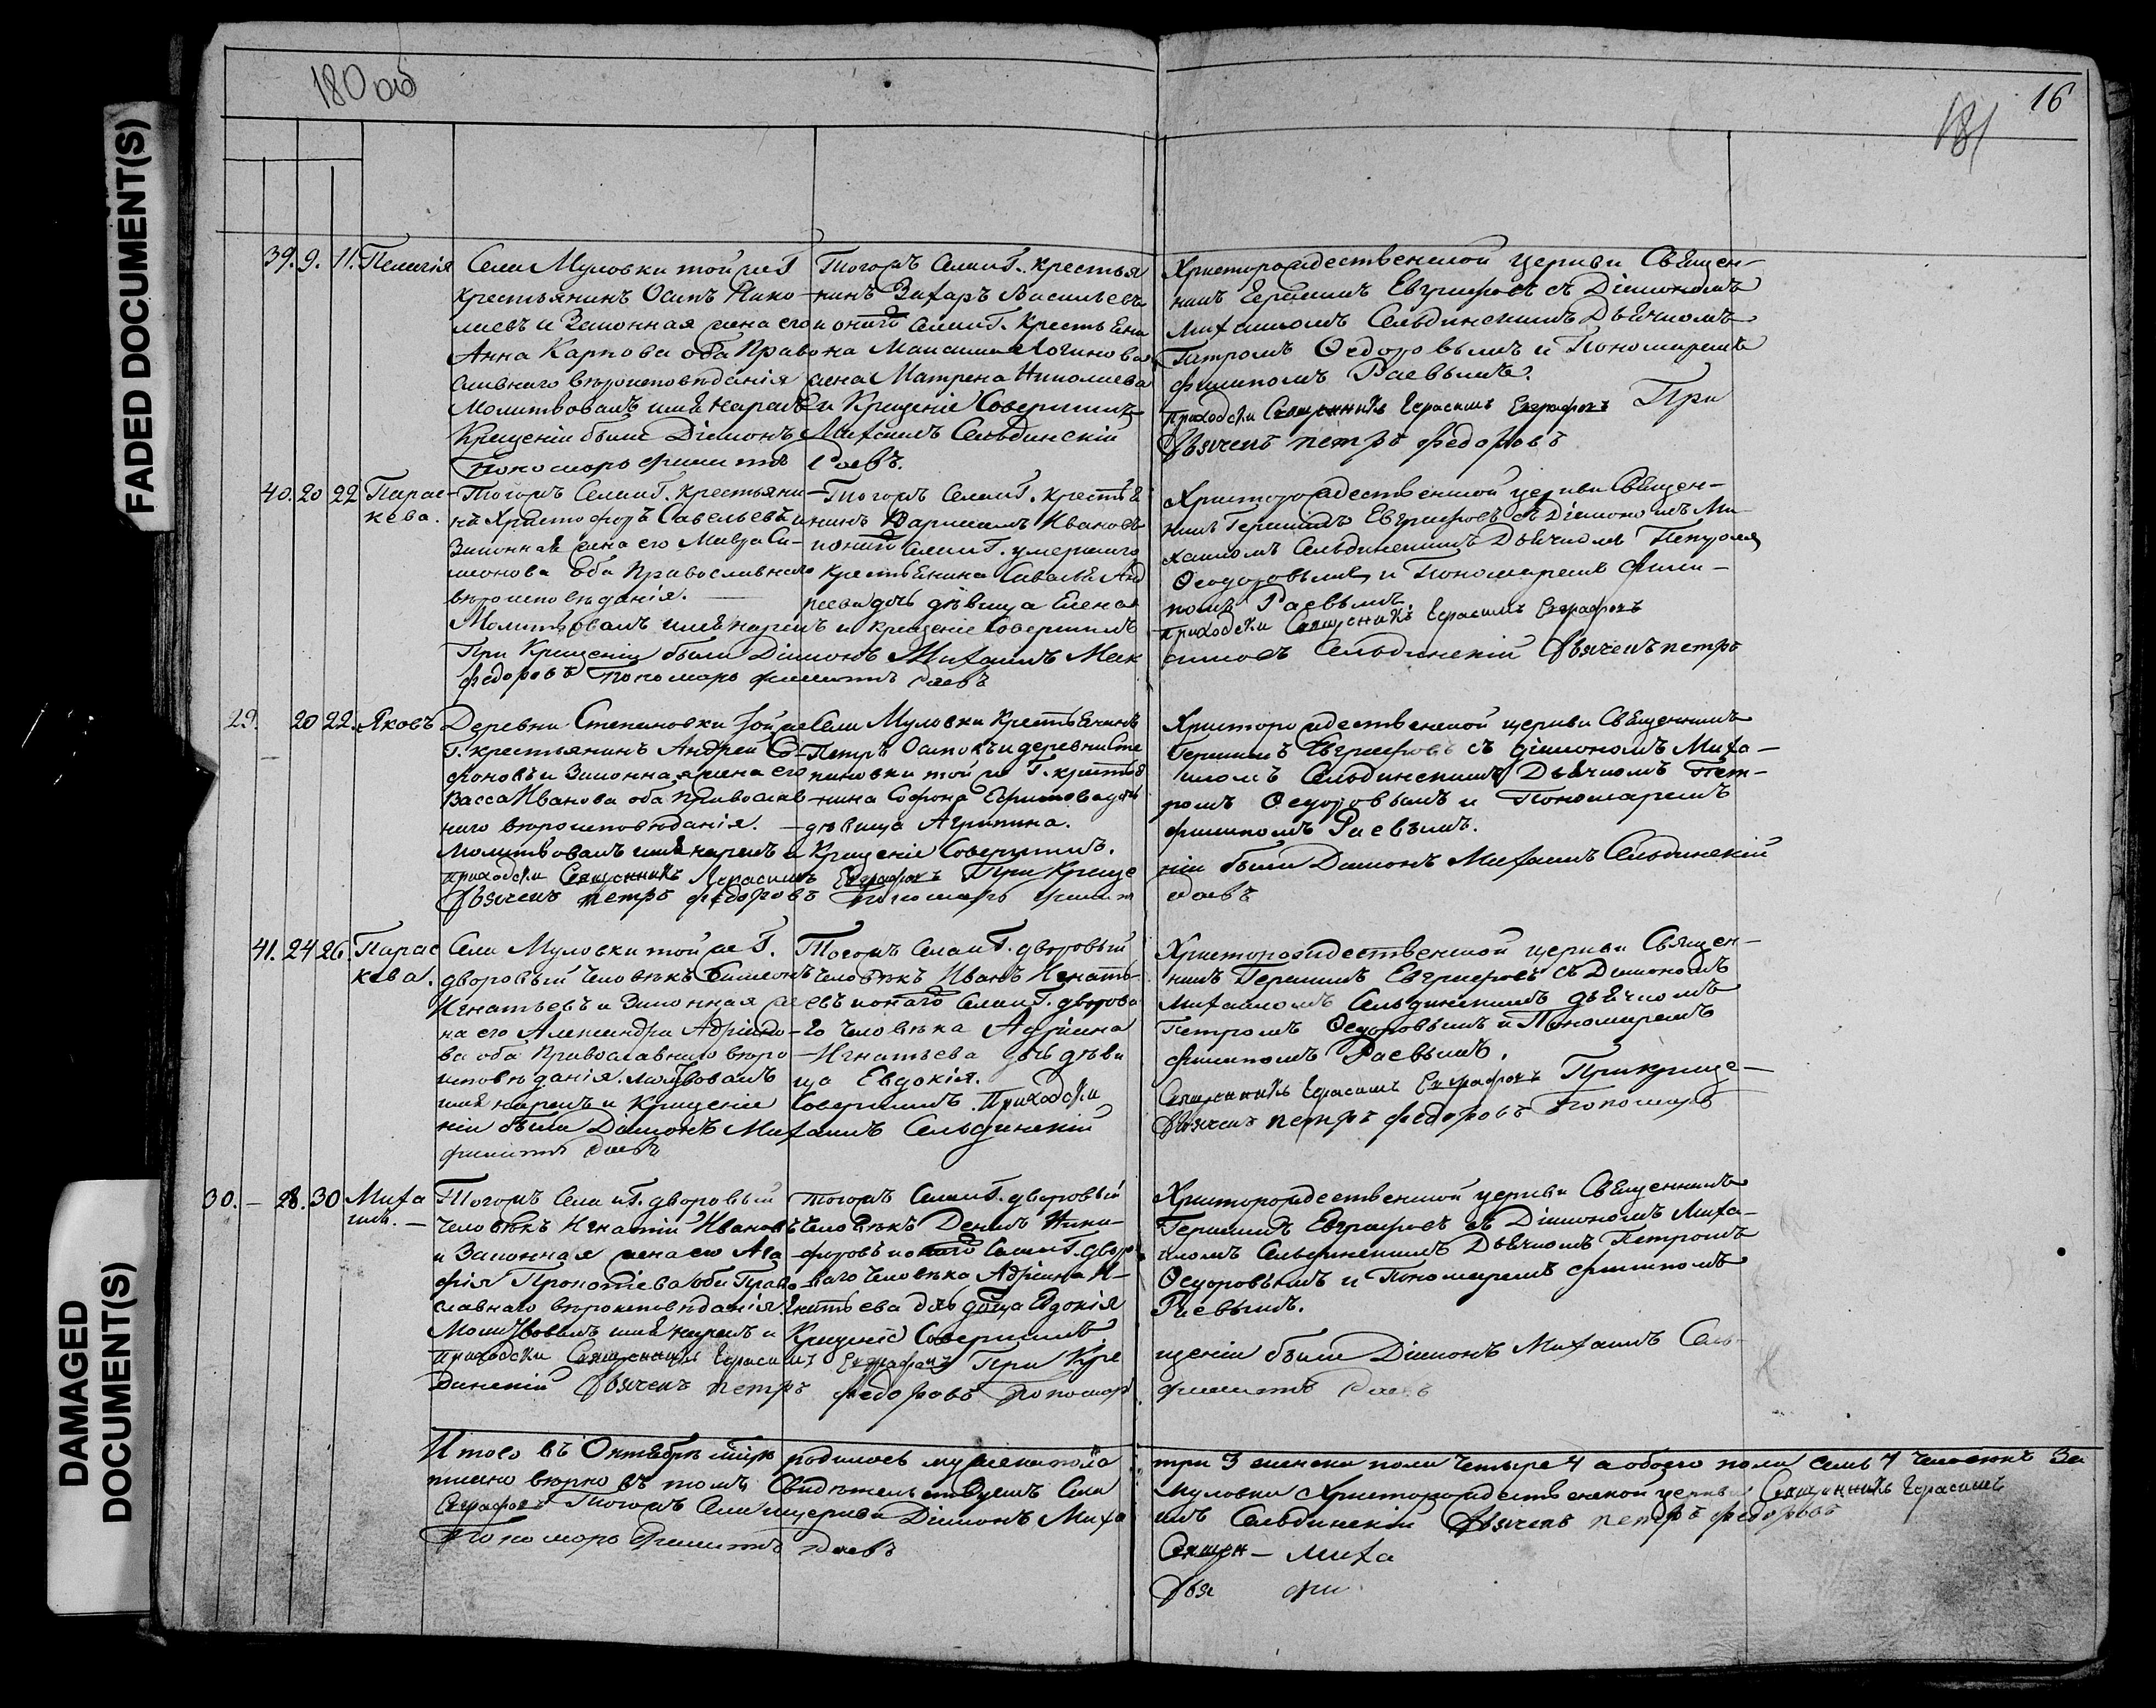 FADED DOCUMENT(S)
DAMAGED
DOCUMENT(S)
180 об
16
181
39. 9. 11. Пелагія
Села Муловки той же Г.
крестьянинъ Осипъ Нико-
лаевъ и Законная жена его
Анна Карпова оба Право
славнаго вѣроисповѣданія
Молитвовалъ имя нарекъ
Крещеніи были Діаконъ
Пономарь Филиппъ
Тогожъ Села и Г. крестья
нинъ Захаръ Васильевъ
и онаго Села и Г. крестьяни
на Максима Логинова
жена Матрена Николаева
и Крещеніе Совершилъ
Михаилъ Сельдинскій
Раевъ.
Христорождественской церкви Священ-
никъ Герасимъ Евграфовъ съ Діакономъ
Михаиломъ Сельдинскимъ Дьячкомъ
Петромъ Ѳедоровымъ и Пономаремъ
Филипомъ Раевымъ.
Приходски Священникъ Герасимъ Евграфовъ При
Дьячекъ петръ федоровъ
40. 20 22 Парас-
кева.
Тогожъ Села и Г. крестьяни-
нъ Христофоръ Савельевъ и
Законная жена его Мавра Си-
меонова Оба Православнаго
вѣроисповѣданія.
Молитвовалъ имя нарекъ
При Крещеніи были Діаконъ
федоровъ Пономарь филиппъ
Тогожъ Села и Г. крестья
нинъ Варламъ Ивановъ
и онаго Села и Г. умершаго
крестьянина Савелья Анд
реева дочь дѣвица Елена
и крещеніе Совершилъ
Михаилъ Мак
раевъ
Христорождественской церкви Священ-
никъ Герасимъ Евграфовъ съ Діакономъ Ми-
хаиломъ Сельдинскимъ Дьячкомъ Петромъ
Ѳеодоровымъ и Пономаремъ Фили-
помъ Раевымъ
приходски Священникъ Герасимъ Евграфовъ
симовъ Сельдинскій Дьячекъ петръ
29. 20 22. Яковъ
Деревни Степановки той же
Г. крестьянинъ Андрей Со-
фоновъ и Законная жена его
Васса Иванова оба православ-
наго вѣроисповѣданія.
Молитвовалъ имя нарекъ и
Приходски Священникъ Герасимъ
Дьячекъ петръ федоровъ
Села Муловки Крестьянинъ
Петръ Осиповъ и деревни Сте
пановки той же Г. крестья
нина Софона дочь
дѣвица Агрипина.
Крещеніе Совершилъ.
Евграфовъ При Креще
Пономарь Филипп
Христорождественской церкви Священникъ
Герасимъ Евграфовъ съ діакономъ Миха-
иломъ Сельдинскимъ Дьячкомъ Пет-
ромъ Ѳеодоровымъ и Пономаремъ
Филипомъ Раевымъ.
ніи были Діаконъ Михаилъ Сельдинскій
раевъ
41. 24 26. Парас
кева.
Села Муловки той же Г.
дворовый Человѣкъ Симеонъ
Игнатьевъ и Законная же
на его Александра Адріано-
ва оба Православнаго вѣро
исповѣданія. молитвовалъ
имя нарекъ и Крещеніе
ніи были Діаконъ
филиппъ раевъ
Тогожъ Села и Г. дворовый
Человѣкъ Иванъ Игнать-
евъ и онаго Села и Г. дворова
го Человѣка Адріана
Игнатьева дочь дѣви
ца Евдокія.
Совершилъ. Приходски
Михаилъ Сельдинскій
Христорождественской церкви Священ-
никъ Герасимъ Евграфовъ съ Діакономъ
Михаиломъ Сельдинскимъ дьячкомъ
Петромъ Ѳеодоровымъ и Пономаремъ
Филипомъ Раевымъ.
Священникъ Герасимъ Евграфовъ При креще-
Дьячекъ петръ федоровъ Пономарь
30. - 28. 30 Миха
илъ. -
Тогожъ Села и Г. дворовый
Человѣкъ Игнатій Ивановъ
и Законная жена его Ага
фія Прокопіева оба Право
славнаго вѣроисповѣданія.
Молитвовалъ имя нарекъ и
Приходски Священникъ Герасимъ
динскій Дьячекъ петръ
Тогожъ Села и Г. дворовый
Человѣкъ Ники-
форовъ и онаго Села и Г. дворо
ваго Человѣка Адріана И-
гнатьева дочь дѣвица Евдокія
Крещеніе Совершилъ
Евграфовъ При Кре
федоровъ Пономарь
Христорождественской церкви Священникъ
Герасимъ Евграфовъ съ Діакономъ Миха-
иломъ Сельдинскимъ Дьячкомъ Петромъ
Ѳеодоровымъ и Пономаремъ Филипомъ
Раевымъ.
щеніи были Діаконъ Михаилъ Сель-
филиппъ раевъ
Итого въ Октябрѣ мѣсяцѣ родилось мужеска пола три 3 женска пола Четыре 4 а обоего пола семь 7 Человѣкъ За
писано вѣрно въ томъ Свидѣтельствуемъ Села Муловки Христорождественской церкви Священникъ Герасимъ
Евграфовъ Тогожъ Села и церкви Діаконъ Миха илъ Сельдинскій Дьячекъ петръ федоровъ
Пономарь Филиппъ Раевъ
Священ- Миха
Дья фи